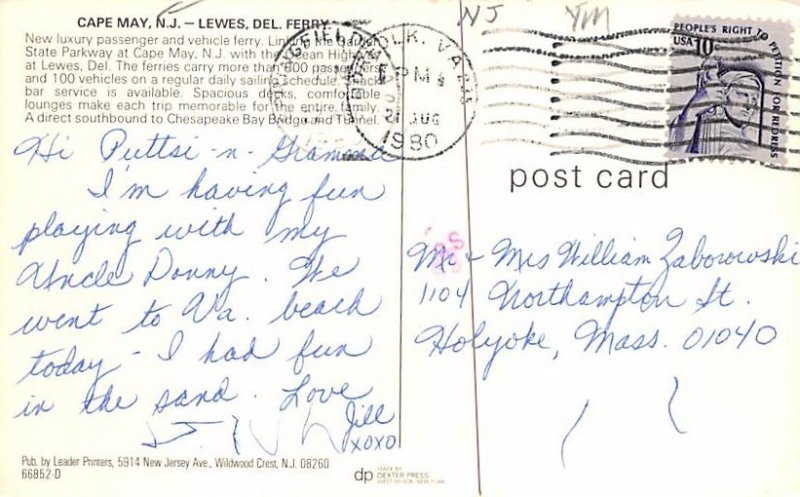 CAPE MAY, N.J. – LEWES, DEL. FERRY
New luxury passenger and vehicle ferry. Linking the Garden
State Parkway at Cape May, N.J. with the Ocean Highway
at Lewes, Del. The ferries carry more than 800 passengers
and 100 vehicles on a regular daily sailing schedule. Snack
bar service is available. Spacious decks, comfortable
lounges make each trip memorable for the entire family.
A direct southbound to Chesapeake Bay Bridge and Tunnel.
NJ
PM
21 AUG
1980
PEOPLE'S RIGHT TO PETITION FOR REDRESS
USA 10c
post card
Hi Puttsi -n- Gramma
I'm having fun
playing with my
Uncle Donny. We
went to Va. beach
today - I had fun
in the sand. Love
Jill
xoxo
Mr + Mrs William Zaborowski
1104 Northampton St.
Holyoke, Mass. 01040
Pub. by Leader Printers, 5914 New Jersey Ave., Wildwood Crest, N.J. 08260
66852-D
dp
MADE BY
DEXTER PRESS
WEST NYACK, NEW YORK